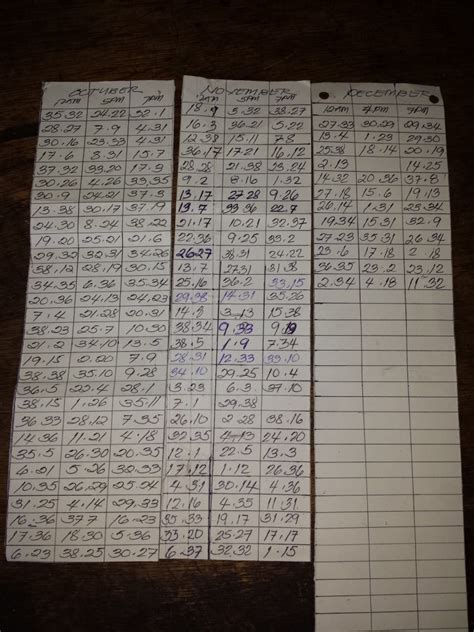 OCTOBER
35.32 24.22 32.1
28.27 7.9 4.31
30.16 23.33 4.31
17.6 8.31 15.7
37.32 33.20 17.2
30.26 4.26 33.35
30.9 24.21 37.3
13.38 30.17 37.9
24.30 8.24 38.22
19.20 25.21 21.6
29.32 32.31 34.26
34.35 6.36 35.34
20.36 24.13 24.23
7.4 21.28 20.31
38.23 25.7 10.30
21.2 34.10 13.5
19.15 7.9
38.38 35.10 9.28
36.5 22.4 28.1
38.15 1.26 35.11
36.33 28.12 7.35
14.36 11.21 4.18
35.5 26.30 20.35
6.21 5.26 32.33
10.35 26.29 25.24
31.25 4.14 29.33
16.36 37.7 16.23
17.36 18.30 5.36
6.23 38.25 30.27
NOVEMBER
18.9 5.32 38.27
16.3 36.21 5.22
12.38 15.11 7.8
36.17 17.21 16.12
28.28 21.38 23.24
9.2 8.16 1.32
13.17 27.28 9.26
13.7 33.36 22.7
21.17 10.21 32.37
22.36 9.25 33.2
26.27 38.31 24.22
13.7 27.31 31.38
25.16 36.2 33.15
29.38 14.31 35.26
14.8 3.13 15.38
38.34 9.33
38.5 1.9 7.34
28.31 12.33 33.10
34.10 29.25 10.4
3.23 6.3 37.10
7.1 29.38
26.10 2.28 38.16
32.35 4.13 24.20
12.1 22.5 13.3
17.12 1.12 26.36
4.31 30.14 4.36
12.16 4.35 11.31
35.33 19.17 31.29
33.20 25.27 17.17
6.37 32.32 1.15
DECEMBER
27.33 30.29 29.34
13.4 1.23 29.30
25.38 18.14 20.19
2.13 14.25
14.32 20.36 37.8
27.18 15.6 19.13
26.14 1.31 25.34
19.34 15.31 32.9
27.23 35.31 26.34
23.6 17.18 2.18
36.35 23.2 23.12
2.34 4.18 11.32